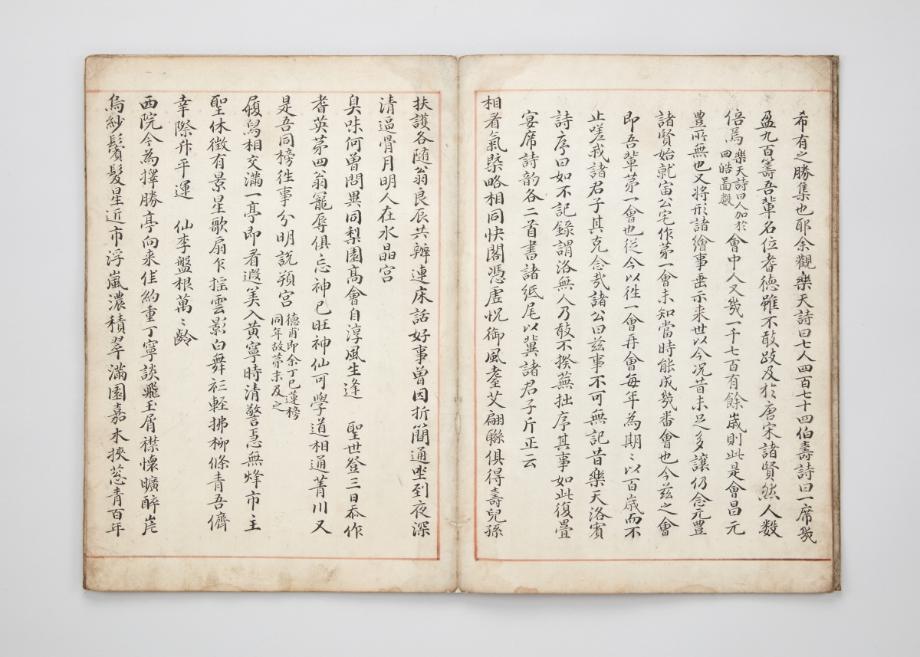 希有之勝集也耶余觀樂天詩曰七人四百七十四伯壽詩曰一席幾
盈九百籌吾輩名位耆德雖不敢跂及於唐宋諸賢然人數
倍焉樂天詩曰人加於四皓圖數會中人又幾一千七百有餘歲則此是會昌元
豊所無也又將形諸繪事垂示來世以今況昔未足多讓仍念元豊
諸賢始就富公宅作第一會未知當時能成幾番會也今玆之會
即吾輩第一會也從今以徃一會再會每年為期〻以百歲而不
止嗟我諸君子其克念哉諸公曰玆事不可無記昔樂天洛賓
詩序曰如不記錄謂洛無人乃敢不揆蕪拙序其事如此復疊
宴席詩韵各二首書諸紙尾以冀諸君子斤正云
相看氣槩略相同快閣憑虛怳御風耋艾翩聯俱得壽兒孫
扶護各隨翁良辰共辦連床話好事曾因折簡通坐到夜深
清逼骨月明人在水晶宮
臭味何曾問異同梨園高會自淳風生逢 聖世登三日忝作
耆英第四翁寵辱俱忘神已旺神仙可學道相通菁川又
是吾同榜徃事分明說頖宮德甫即余丁巳蓮榜同年故第末及之
履舃相交滿一亭即看遐筭入黃寧時清警急無烽市主
聖休徵有景星歌扇乍搖雲影白舞衫輕拂柳條青吾儕
幸際升平運 仙李盤根萬〻齡
西院今為擇勝亭向來佳約重丁寧談飛玉屑襟懷曠醉岸
烏紗鬢髮星近市浮嵐濃積翠滿園嘉木挾葱青百年